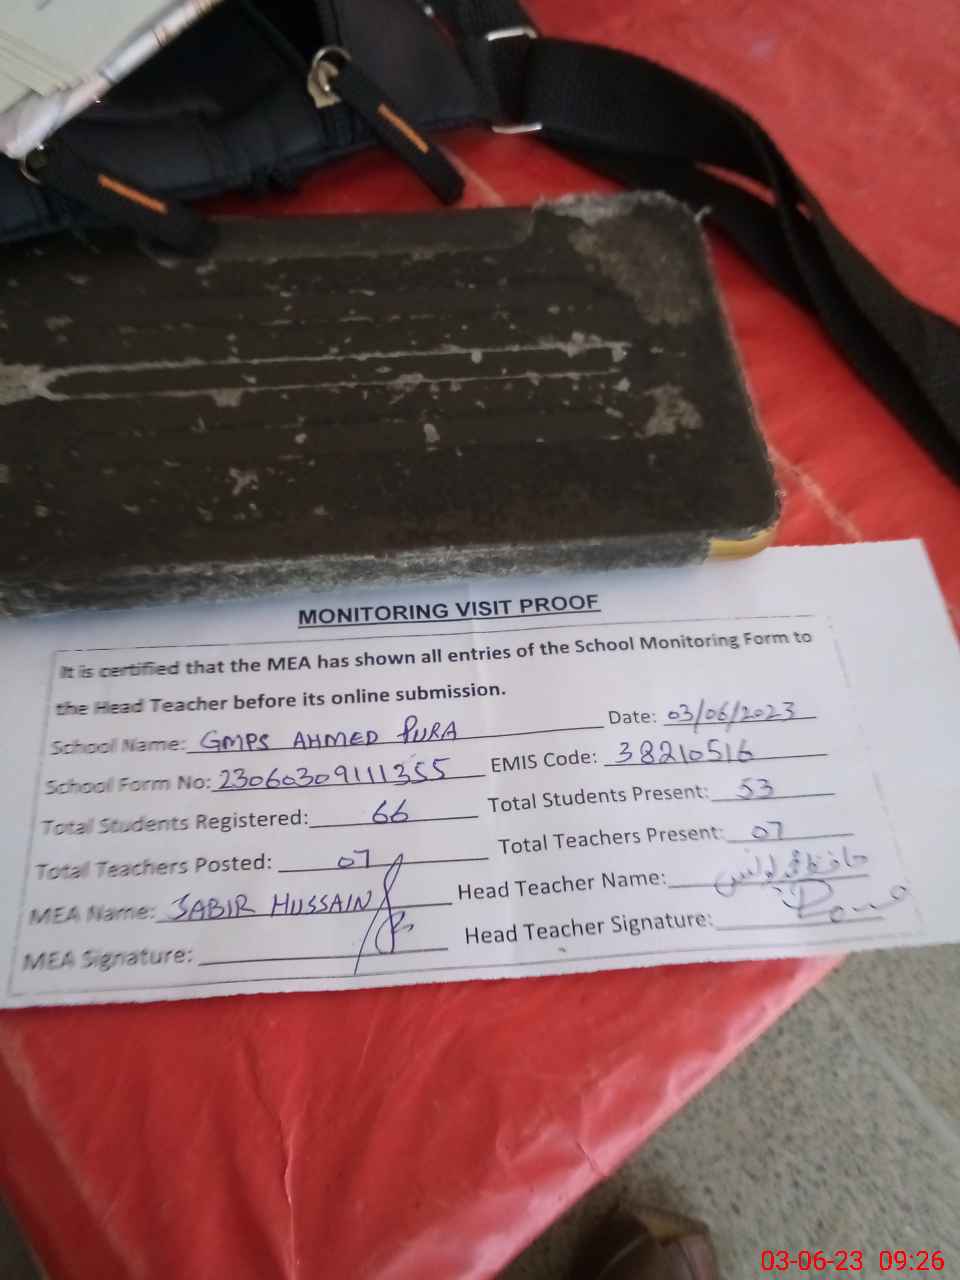 MONITORING VISIT PROOF
It is certified that the MEA has shown all entries of the School Monitoring Form to
the Head Teacher before its online submission.
School Name: GMPS AHMED PURA Date: 03/06/2023
School Form No: 23060309111355 EMIS Code: 38210516
Total Students Registered: 66 Total Students Present: 53
Total Teachers Posted: 07 Total Teachers Present: 07
MEA Name: SABIR HUSSAIN Head Teacher Name: حافظ
MEA Signature: Head Teacher Signature:
03-06-23 09:26